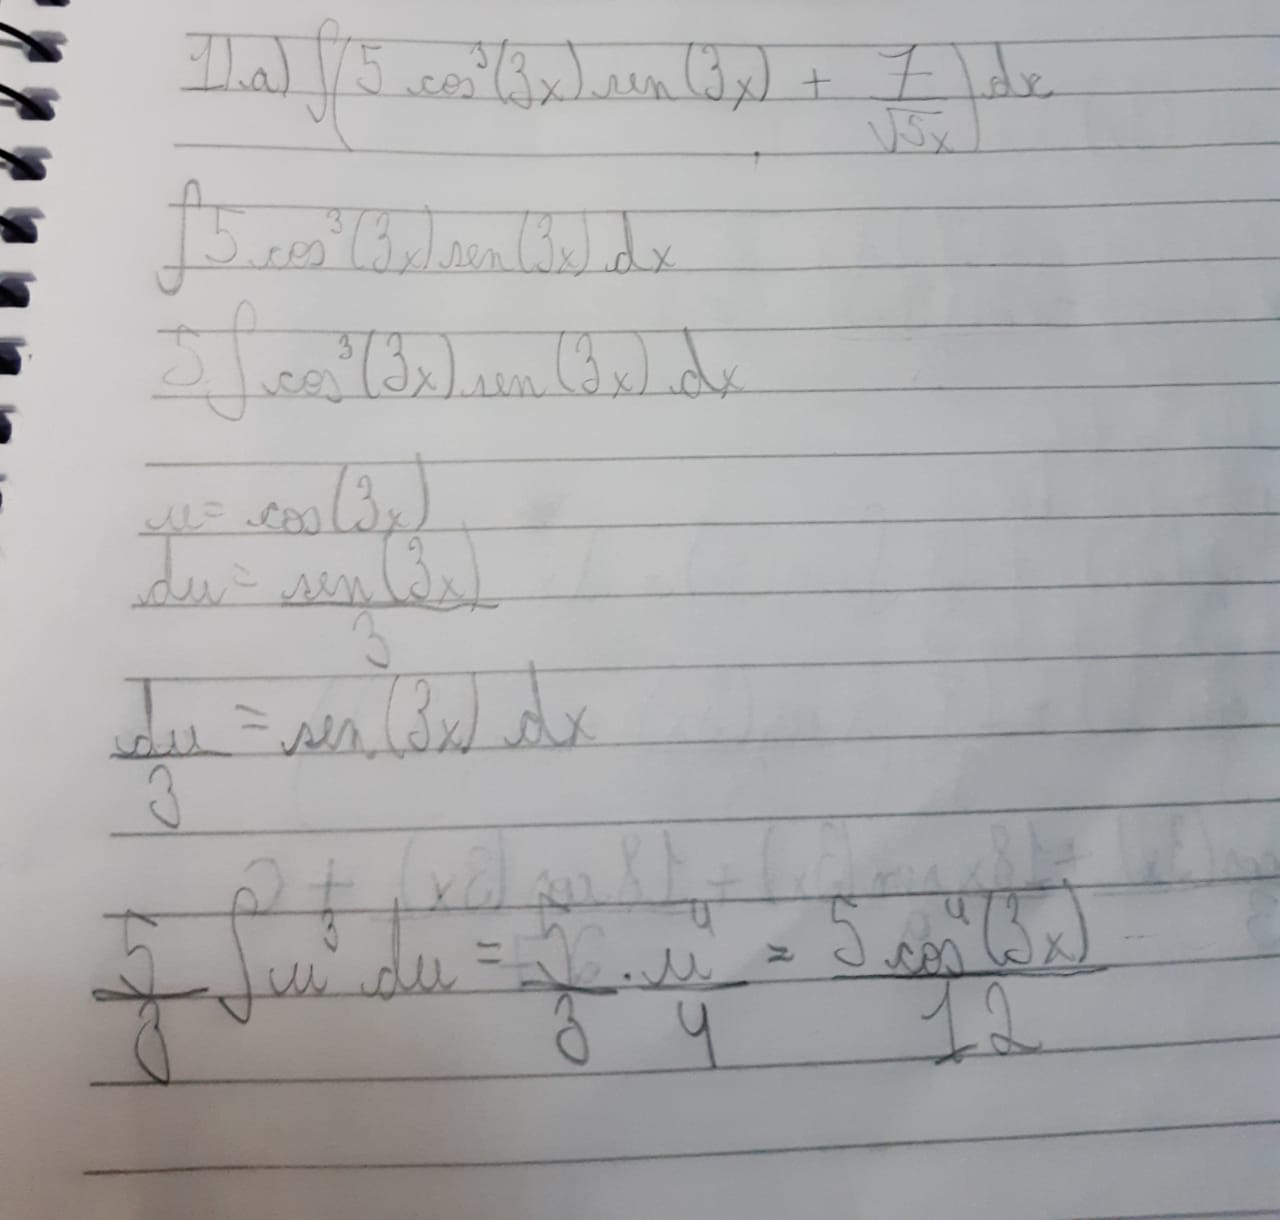 1).a) ∫(5 cos³(3x) sen(3x) + 7/√5x) dx
∫5 cos³(3x) sen(3x) dx
5∫cos³(3x) sen(3x) dx
u = cos(3x)
du = sen(3x)/3
du/3 = sen(3x) dx
5/3 ∫u³ du = 5/3 . u⁴/4 = 5 cos⁴(3x)/12